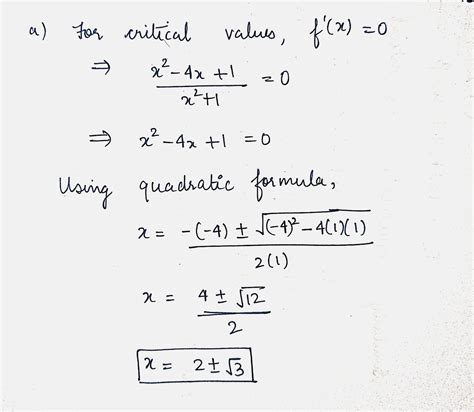 a) For critical values, f'(x) = 0
⇒ (x² - 4x + 1)/(x² + 1) = 0
⇒ x² - 4x + 1 = 0
Using quadratic formula,
x = (-(-4) ± √((-4)² - 4(1)(1)))/(2(1))
x = (4 ± √12)/2
x = 2 ± √3